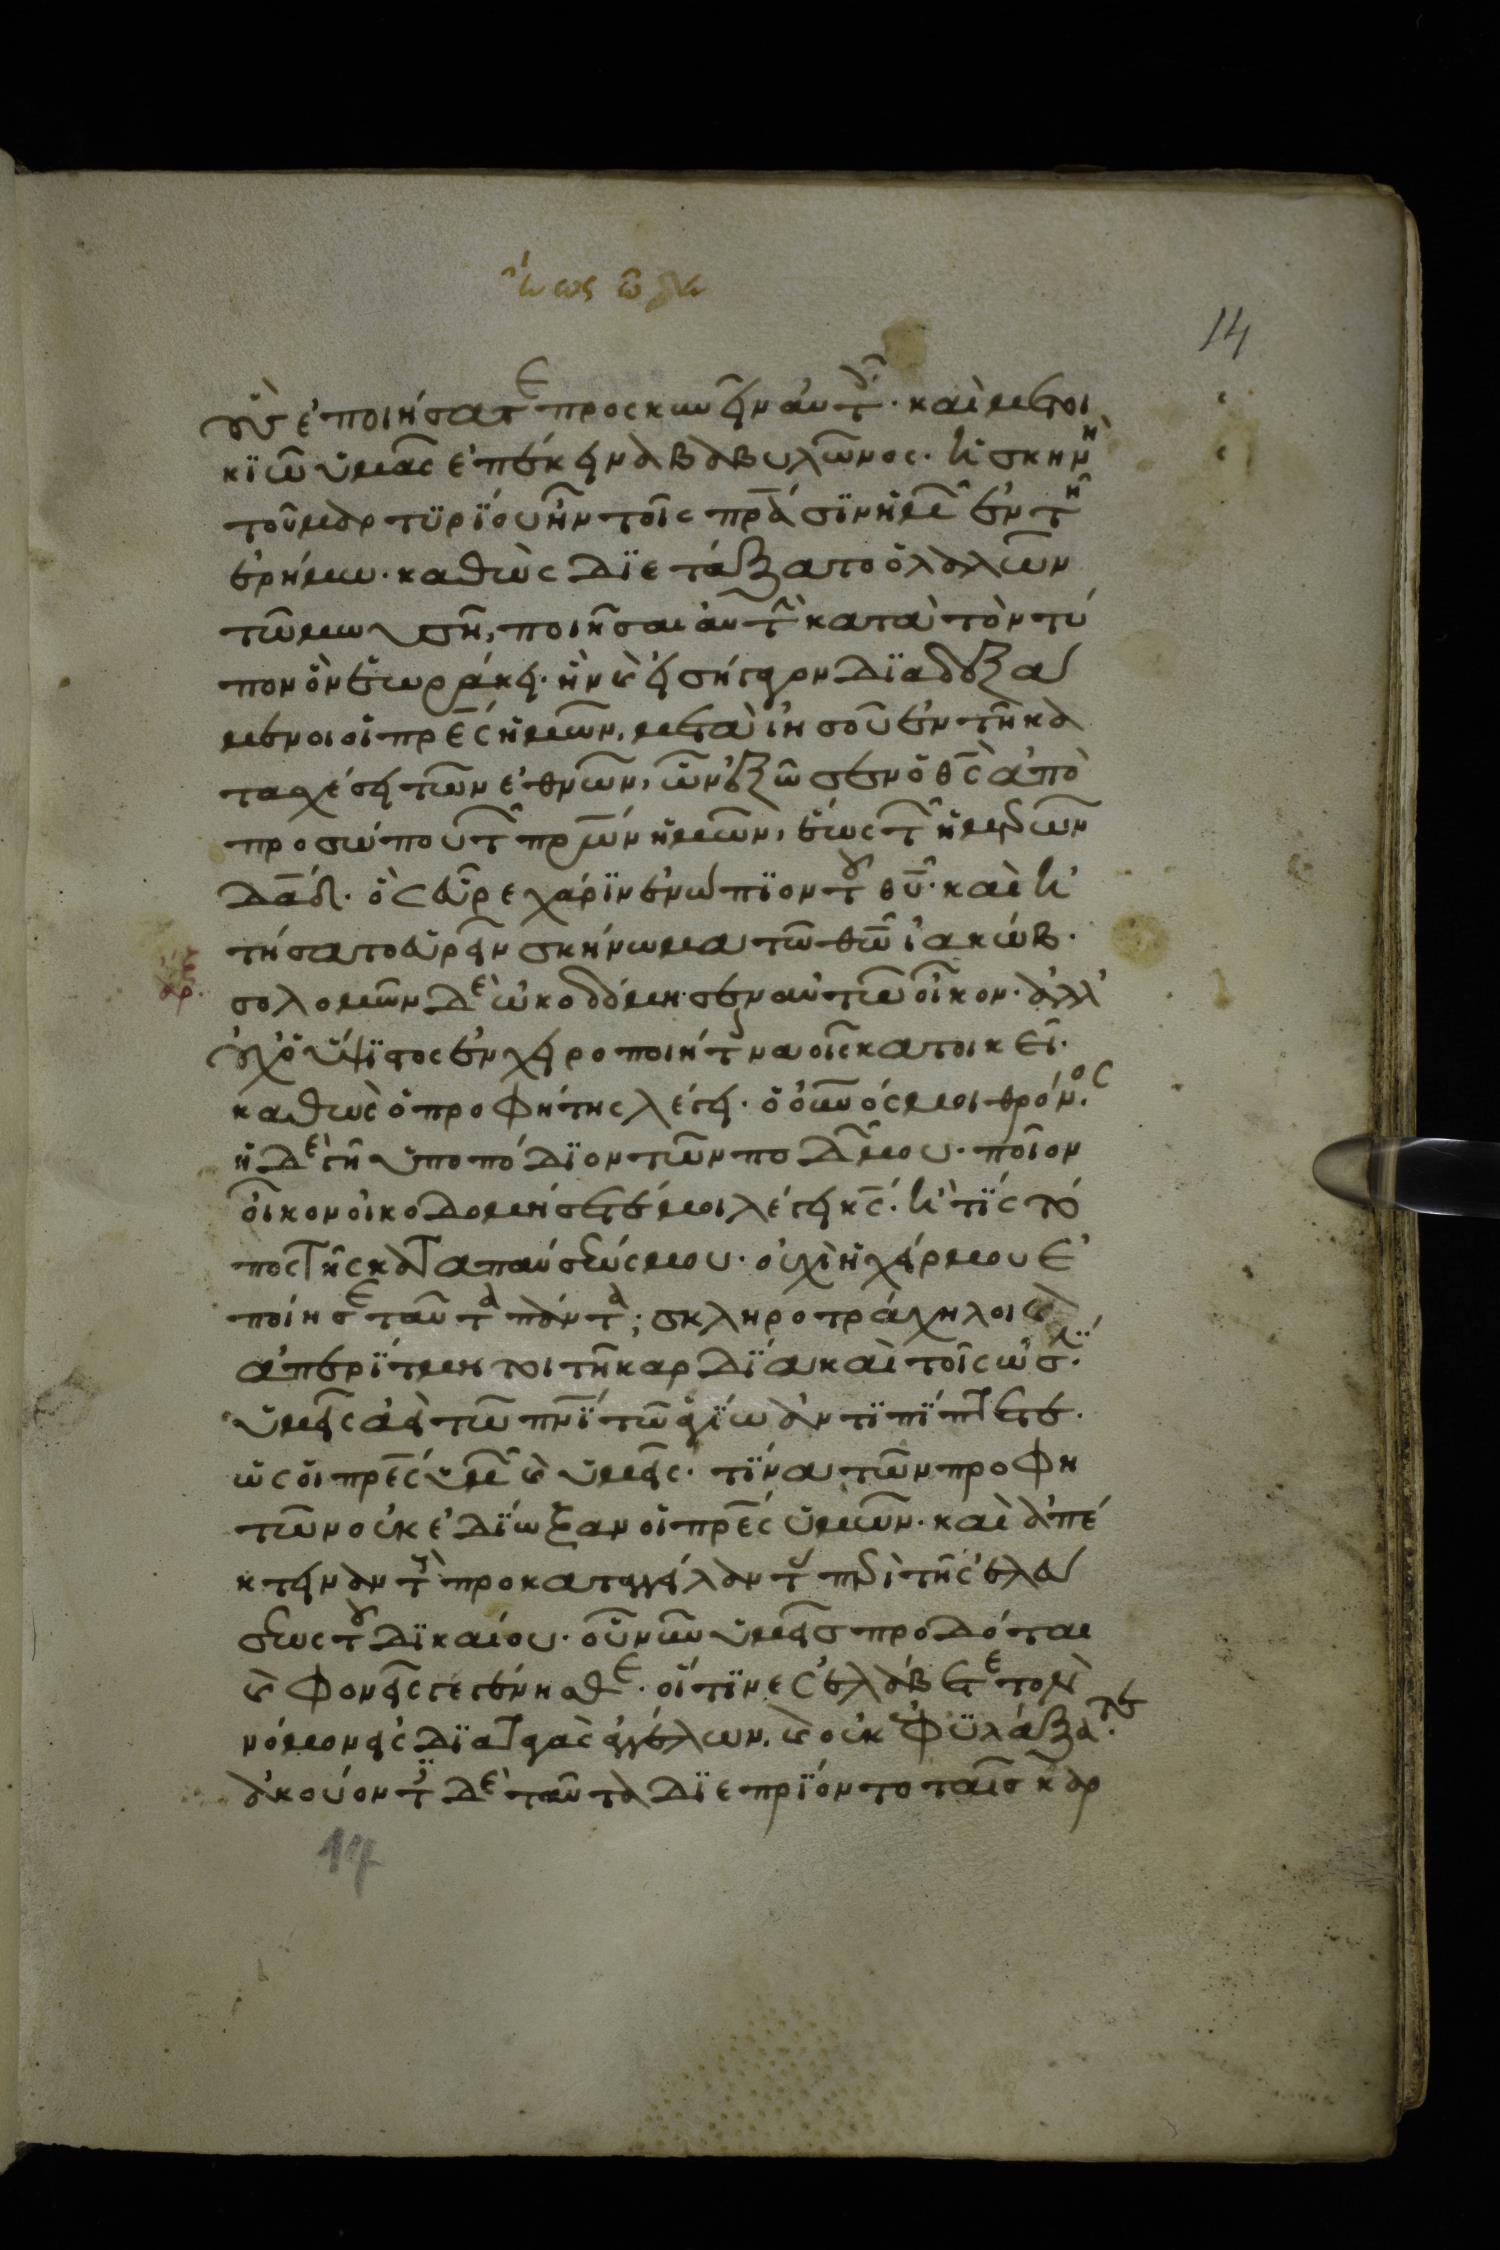 14
οὓς ἐποιήσατε προσκυνεῖν αὐτοῖς· καὶ μετοι
κϊῶ ὑμᾶς ἐπέκεινα βαβυλῶνος. ἡ σκηνὴ
τοῦ μαρτϋρΐου ἦν τοῖς πρ̅ά̅σϊν ἡμῶν ἐν τῆ
ἐρήμω. καθὼς δϊετάξατο ὁ λαλῶν
τῶ μωυσῆ, ποιῆσαι αὐτὴν κατὰ τὸν τύ
πον ὃν ἑωράκει. ἣν καὶ εἰσήγαγον δϊαδεξά
μενοι οἱ πρ̅ε̅ς ἡμῶν, μετὰ ἰησοῦ ἐν τῆ κα
τασχέσει τῶν ἐθνῶν, ὧν ἐξῶσεν ὁ θ̅ς̅ ἀπὸ
προσώπου τῶν πρ̅ω̅ν ἡμῶν, ἕως τῶν ἡμερῶν
δα̅δ̅. ὃς εὗρε χάρϊν ἐνώπϊον τοῦ θ̅υ̅. καὶ ἠ
τήσατο εὑρεῖν σκήνωμα τῶ θ̅ω̅ ἰακώβ.
σολομῶν δὲ ὠκοδόμησεν αὐτῶ οἶκον. ἀλλ'
οὐχ ὁ ὕψϊστος ἐν χειροποιήτοις ναοῖς κατοικεῖ.
καθὼς ὁ προφήτης λέγει. ὁ οὐ̅ν̅ός μοι θρόνος.
ἡ δὲ γῆ ὑποπόδϊον τῶν ποδῶν μου. ποῖον
οἶκον οἰκοδομήσετέ μοι λέγει κ̅ς̅. ἢ τίς τό
πος τῆς καταπαύσεώς μου. οὐχὶ ἡ χείρ μου ἐ
ποίησε ταῦτα πάντα; σκληροτράχηλοι καὶ
ἀπερΐτμητοι τῆ καρδΐα καὶ τοῖς ὠσΐν.
ὑμεῖς ἀεὶ τῶ πν̅ϊ̅ τῶ ἁγΐω ἀντϊπΐπτετε.
ὡς οἱ πρ̅ε̅ς ὑμῶν καὶ ὑμεῖς. τΐνα τῶν προφη
τῶν οὐκ ἐδΐωξαν οἱ πρ̅ε̅ς ὑμῶν. καὶ ἀπέ
κτειναν τοὺς προκαταγγείλαντας περὶ τῆς ἐλεύ
σεως τοῦ δϊκαίου. οὗ νῦν ὑμεῖς προδόται
καὶ φονεῖς γεγένησθε. οἵτϊνες ἐλάβετε τὸν
νόμον εἰς δϊαταγὰς ἀγγέλων, καὶ οὐκ ἐφϋλάξατε.
ἀκούοντες δὲ ταῦτα δϊεπρΐοντο ταῖς καρ
17